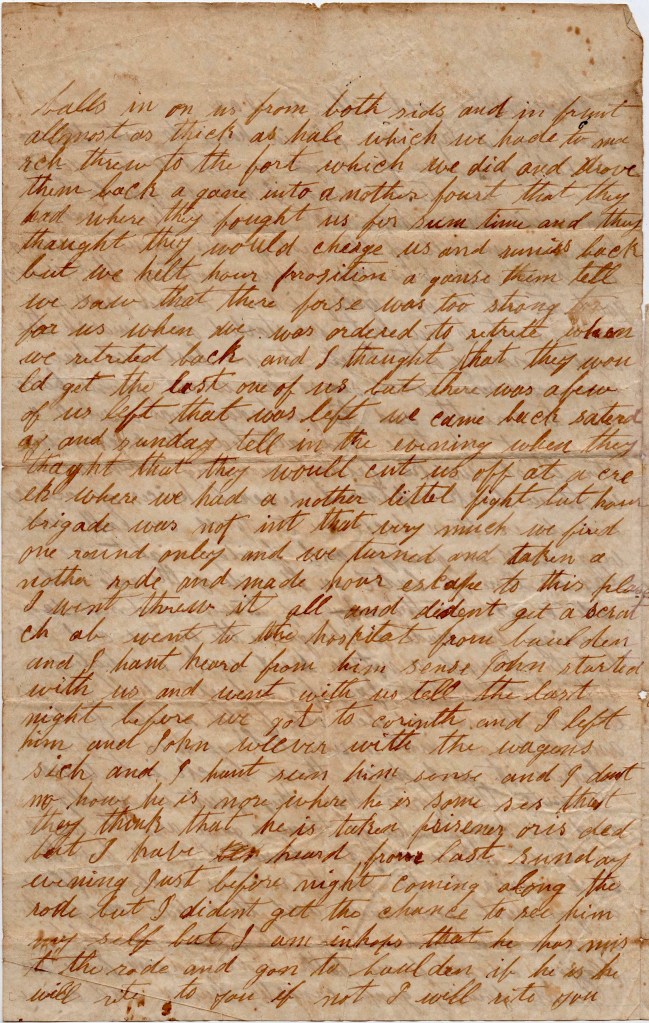 balls in on us from both sids and in frunt
allmost as thick as hale which we hade to ma
rch threw to the fort which we did and drove
them back a gane into a nother fourt that they
had where they fought us for sum time and they
thaught they would charge us and run us back
but we helt hour prosition a ganse them tell
we saw that there forse was too strong for
for us when we was ordered to retrite when
we retrited back and I thaught that they wou
ld get the last one of us but there was a few
of us left that was left we came back saterd
ay and sunday tell in the evening when they
thaght that they would cut us off at a cre
ek where we had a nother littel fight but hour
brigade was not int that very much we fired
one round onley and we turned and taken a
nother rode and made hour escape to this place
I went threw it all and dident get a scrat
ch ab went to the hospital from baulden
and I hant heard from him sense John started
with us and went with us tell the last
night before we got to corinth and I left
him and John wever with the wagons
sich and I hant seen him sense and I dont
no how he is nore where he is some ses that
they think that he is taken prisener or is ded
but I have heard from last sunday
evening Just before night coming along the
rode but I dident get the chance to see him
my self but I am inhops that he has mis
t the rode and gon to baulden if he is he
will rite to you if not I will rite you